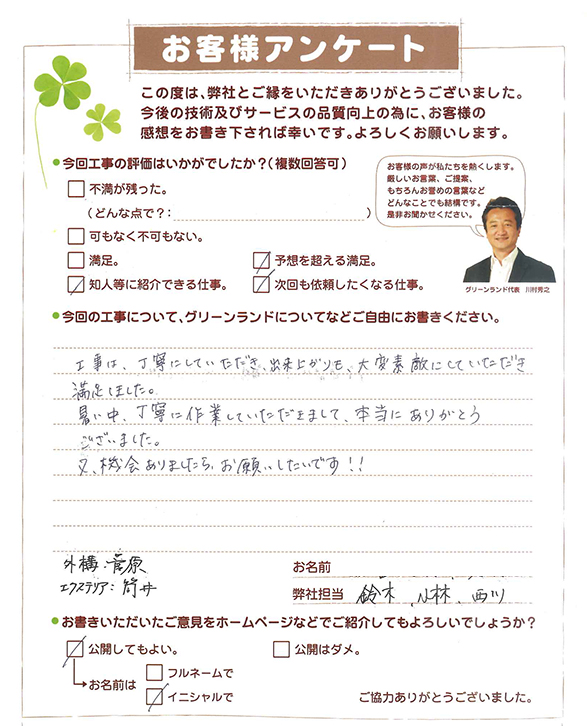 お客様アンケート
この度は、弊社とご縁をいただきありがとうございました。
今後の技術及びサービスの品質向上の為に、お客様の
感想をお書き下されば幸いです。よろしくお願いします。
●今回工事の評価はいかがでしたか?(複数回答可)
不満が残った。
(どんな点で?: )
可もなく不可もない。
満足。
予想を超える満足。
知人等に紹介できる仕事。
次回も依頼したくなる仕事。
お客様の声が私たちを熱くします。
厳しいお言葉、ご提案、
もちろんお誉めの言葉など
どんなことでも結構です。
是非お聞かせください。
グリーンランド代表 川村秀之
●今回の工事について、グリーンランドについてなどご自由にお書きください。
工事は、丁寧にしていただき、出来上がりも、大変素敵にしていただき
満足しました。
暑い中、丁寧に作業していただきまして、本当にありがとう
ございました。
又、機会ありましたら、お願いしたいです!!
外構:菅原
エクステリア:筒井
お名前
弊社担当 鈴木、小林、西川
●お書きいただいたご意見をホームページなどでご紹介してもよろしいでしょうか?
公開してもよい。
公開はダメ。
お名前は
フルネームで
イニシャルで
ご協力ありがとうございました。